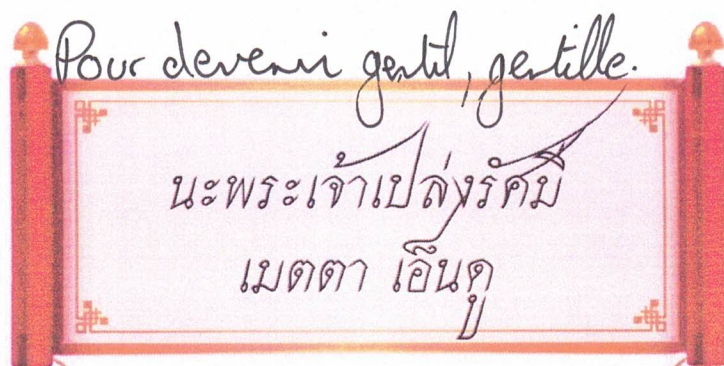 Pour devenir gentil, gentille.
นะพระเจ้าเปล่งรัศมี
เมตตา เอ็นดู